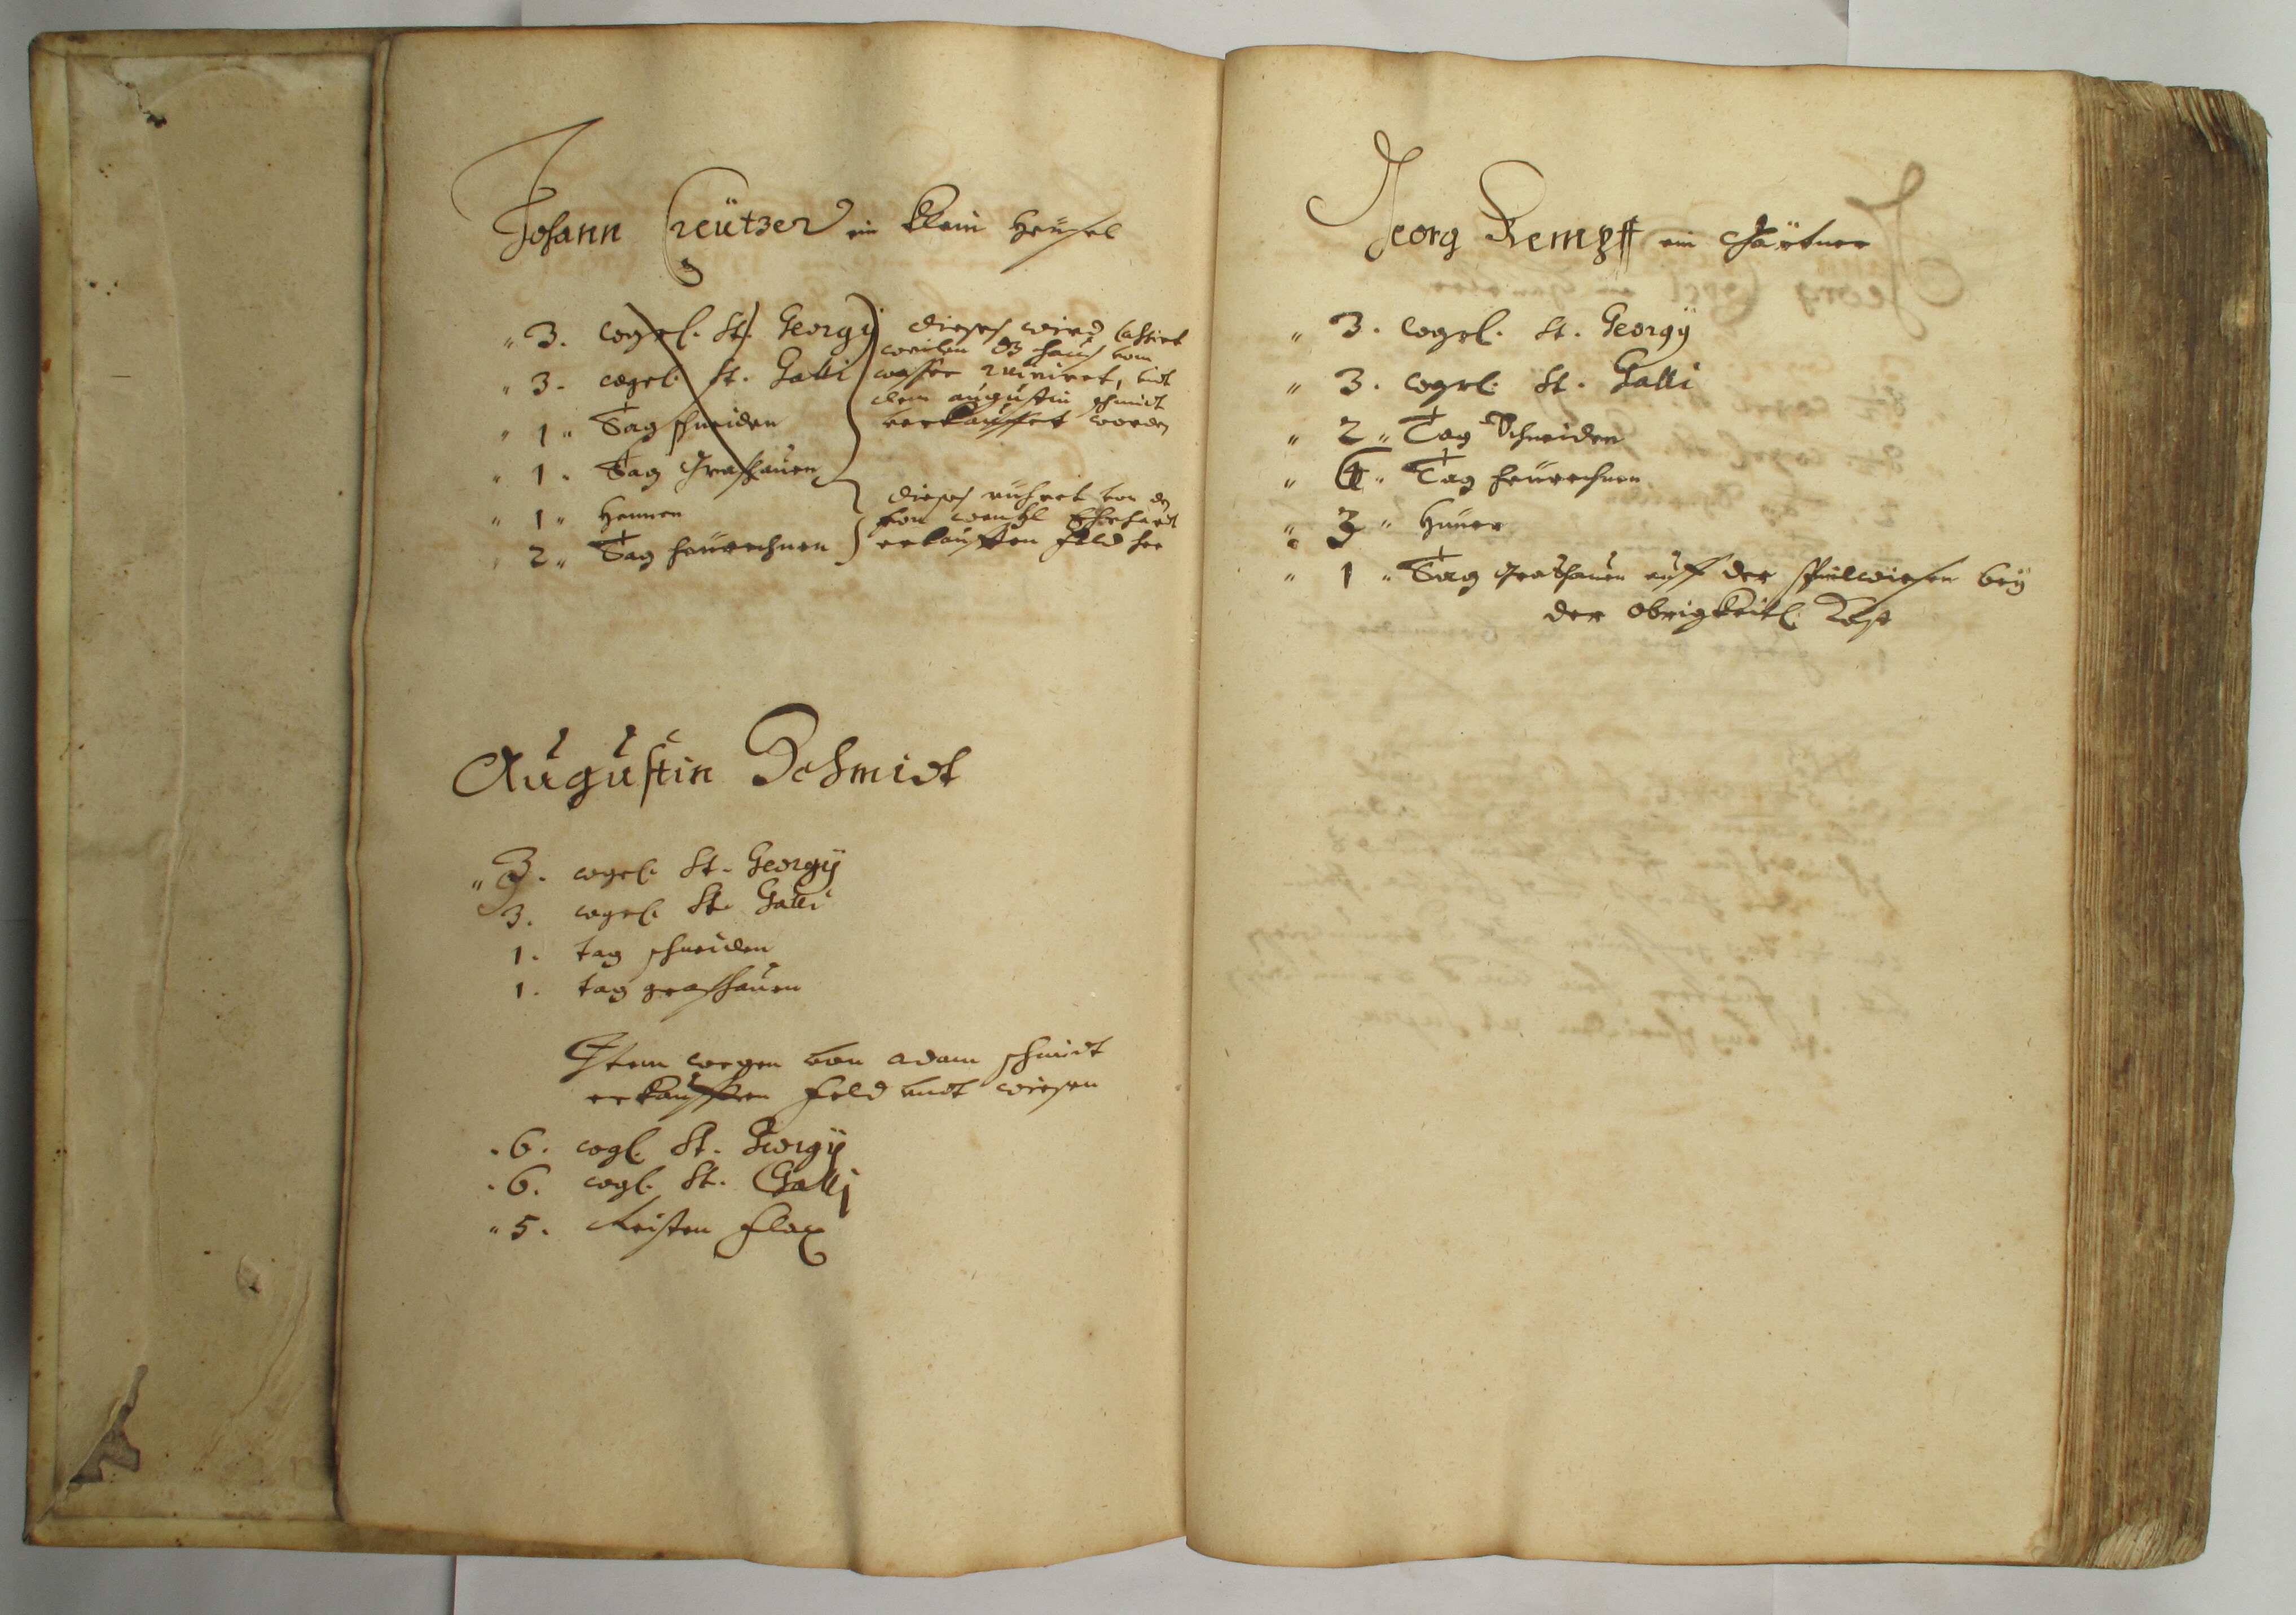 Johann Creützer ein klein Heüsel
" 3. wgrl. St. Georgÿ
" 3. wgrl. St. Galli
" 1 " Tag schneiden
" 1 " Tag Graßhauen
" 1 " Hennen
" 2 " Tag heürechnen
dieses wird Cassirt
weilen dz hauß vom
wasser ruiniret, undt
dem augustin schmidt
verkauffet worden
dieses rühret von dem
von wentzl Ehrhardt
erkaufften feld her
Augustin Schmidt
" 3. wgrl. St. Georgÿ
3. wgrl. St. Galli
1. tag schneiden
1. tag graßhauen
Item wegen von adam schmidt
erkaufften feld undt wiesen
. 6. wgl. St. Georgÿ
. 6. wgl. St. Gallj
" 5. Reisten flax
Georg Kempff ein Gärtner
" 3. wgrl. St. Georgÿ
" 3. wgrl. St. Galli
" 2 " Tag Schneiden
" " Tag heürechnen
" 3 " Hüner
" 1 " Tag Graßhauen auff der wiesen beÿ
der obrigkeitl. Kost